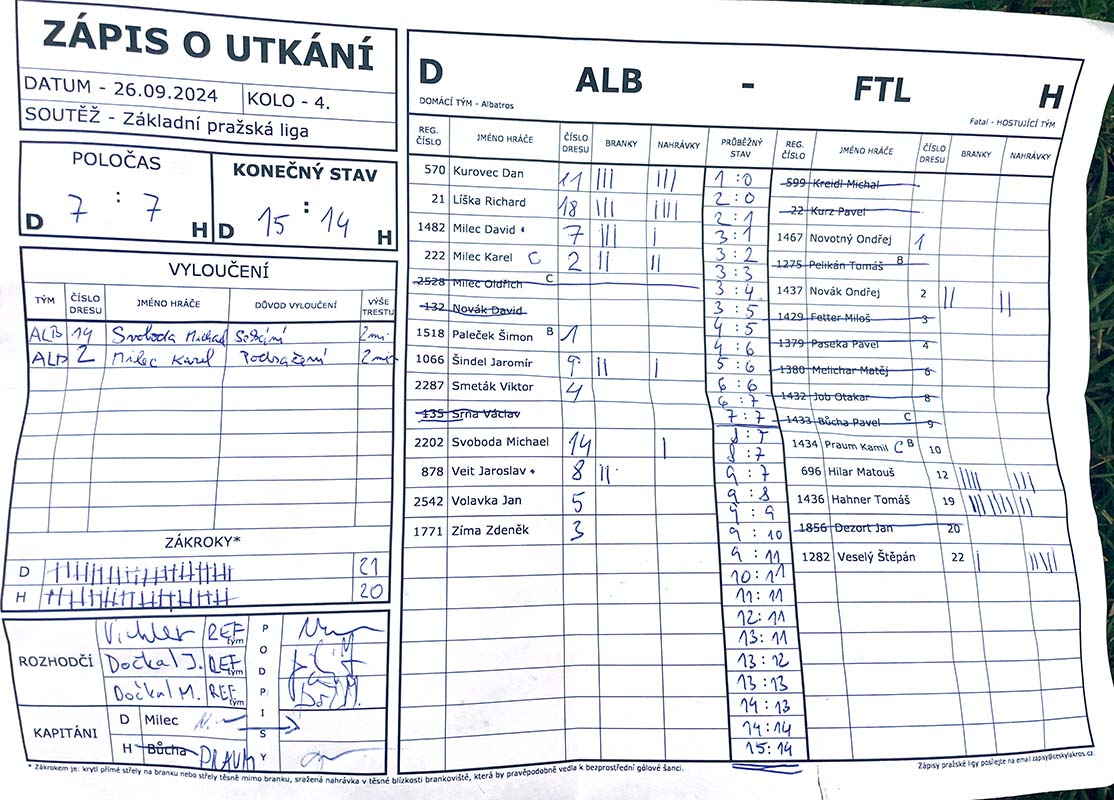 ZÁPIS O UTKÁNÍ
DATUM - 26.09.2024 KOLO - 4.
SOUTĚŽ - Základní pražská liga
POLOČAS
7 : 7
D H
KONEČNÝ STAV
15 : 14
D H
VYLOUČENÍ
TÝM ČÍSLO DRESU JMÉNO HRÁČE DŮVOD VYLOUČENÍ VÝŠE TRESTU
ALB 14 Svoboda Michael 2 mi
ALB 2 Milec Karel Podražení 2 mi
ZÁKROKY*
D 21
H 20
ROZHODČÍ
Vichler REF tým
Dočkal J. REF tým
Dočkal M. REF tým
PODPISY
KAPITÁNI
D Milec
H Bůcha PRAUM
* Zákrokem je: krytí přímé střely na branku nebo střely těsně mimo branku, sražená nahrávka v těsné blízkosti brankoviště, která by pravěpodobně vedla k bezprostřední gólové šanci.
D ALB - FTL H
DOMÁCÍ TÝM - Albatros
Fatal - HOSTUJÍCÍ TÝM
REG. ČÍSLO JMÉNO HRÁČE ČÍSLO DRESU BRANKY NAHRÁVKY
570 Kurovec Dan 11 ||| |||
21 Líška Richard 18 ||| ||||
1482 Milec David 7 ||| |
222 Milec Karel C 2 || ||
2528 Milec Oldřich C
132 Novák David
1518 Paleček Šimon B 1
1066 Šindel Jaromír 9 || |
2287 Smeták Viktor 4
135 Srna Václav
2202 Svoboda Michael 14 |
878 Veit Jaroslav 8 ||
2542 Volavka Jan 5
1771 Zíma Zdeněk 3
PRŮBĚŽNÝ STAV
1 : 0
2 : 0
2 : 1
3 : 1
3 : 2
3 : 3
3 : 4
3 : 5
4 : 5
4 : 6
5 : 6
6 : 6
6 : 7
7 : 7
8 : 7
8 : 7
9 : 7
9 : 8
9 : 9
9 : 10
9 : 11
10 : 11
11 : 11
12 : 11
13 : 11
13 : 12
13 : 13
14 : 13
14 : 14
15 : 14
REG. ČÍSLO JMÉNO HRÁČE ČÍSLO DRESU BRANKY NAHRÁVKY
599 Kreidl Michal
22 Kurz Pavel
1467 Novotný Ondřej 1
1275 Pelikán Tomáš B
1437 Novák Ondřej 2 || ||
1429 Fetter Miloš 3
1379 Paseka Pavel 4
1380 Melichar Matěj 6
1432 Job Otakar 8
1433 Bůcha Pavel C 9
1434 Praum Kamil C B 10
696 Hilar Matouš 12 |||| |||
1436 Hahner Tomáš 19
1856 Dezort Jan 20
1282 Veselý Štěpán 22 | |||||
Zápisy pražské ligy posílejte na email zapisy@ceskylakros.cz.